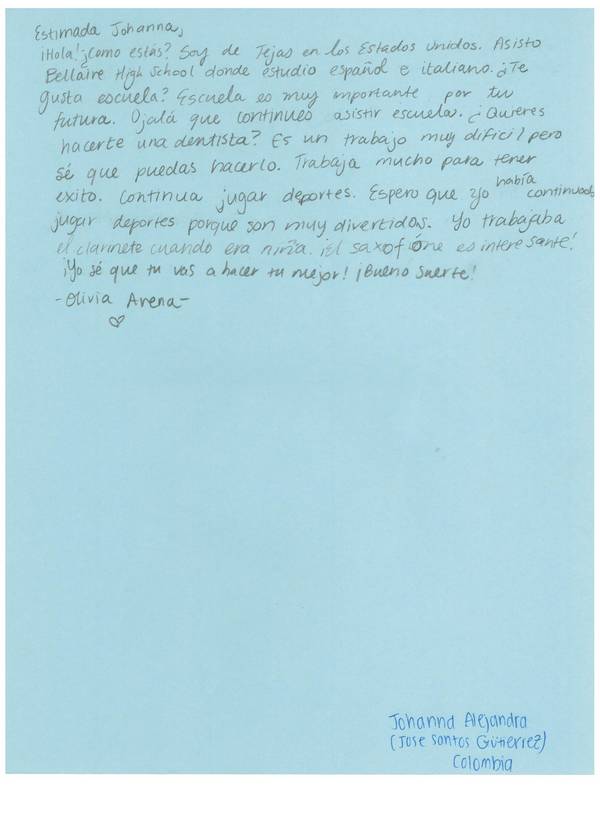 Estimada Johanna,
¡Hola! ¿Como estás? Soy de Tejas en los Estados Unidos. Asisto
Bellaire High School donde estudio español e italiano. ¿Te
gusta escuela? Escuela es muy importante por tu
futura. Ojalá que continues asistir escuela. ¿Quieres
hacerte una dentista? Es un trabajo muy dificil pero
sé que puedas hacerlo. Trabaja mucho para tener
exito. Continua jugar deportes. Espero que yo había continuado
jugar deportes porque son muy divertidos. Yo trabajaba
el clarinete cuando era niña. ¡El saxofóne es interesante!
¡Yo sé que tu vas a hacer tu mejor! ¡Bueno suerte!
-Olivia Arena-
Johanna Alejandra
(Jose Santos Gutierrez)
Colombia